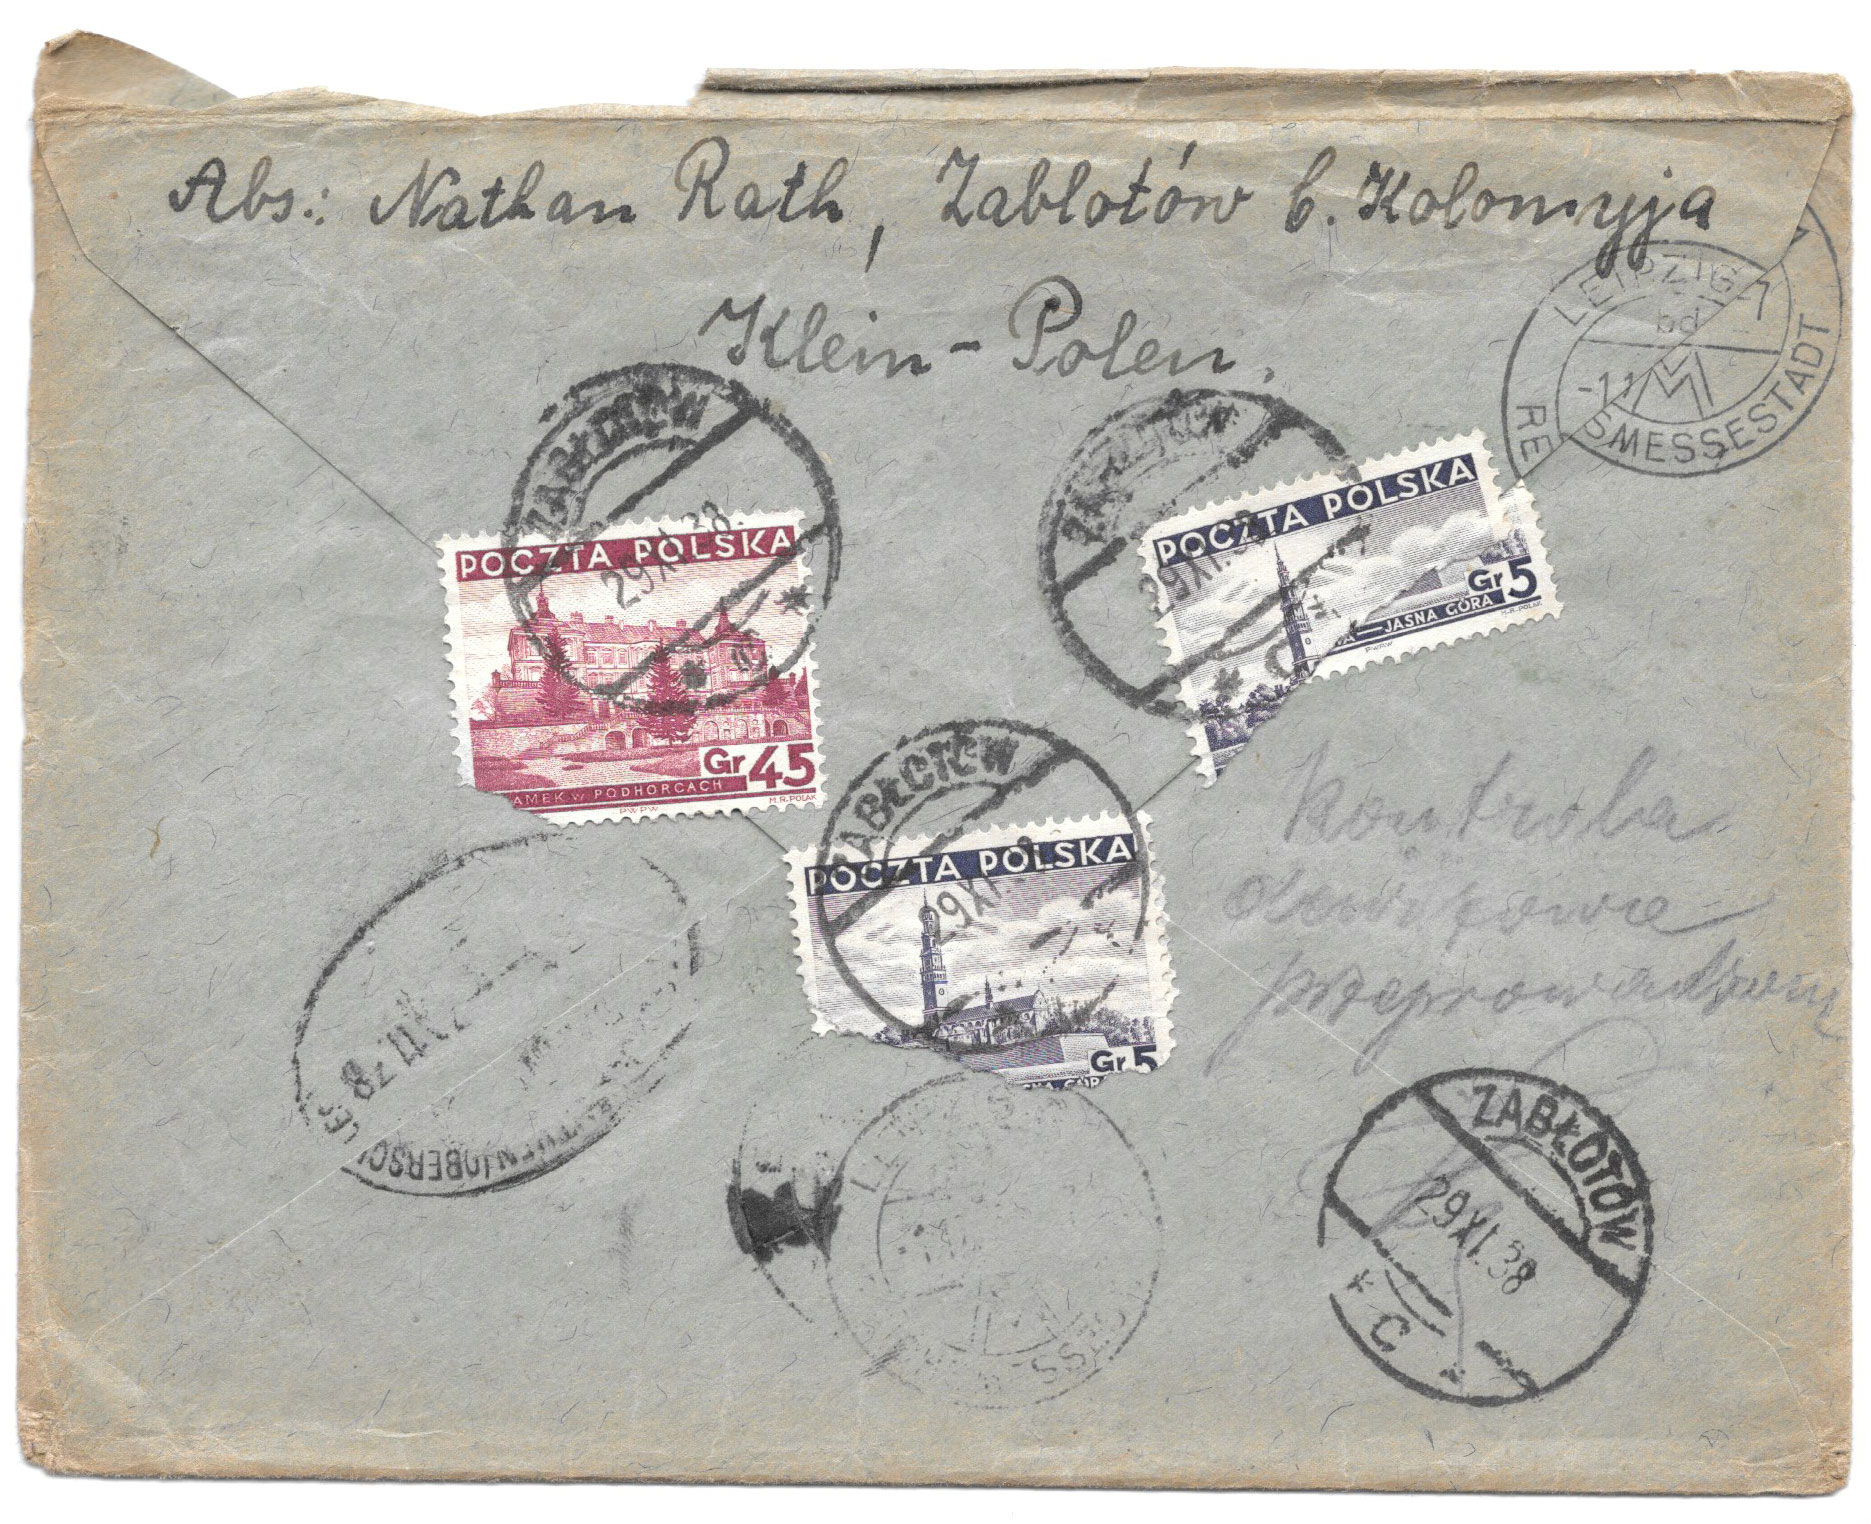 Abs.: Nathan Rath, Zablotów b. Kolomyja
Klein-Polen.
LEIPZIG
bd
-1.1
RE
SMESSESTADT
ZABŁOTÓW
29XI.38
POCZTA POLSKA
Gr 45
AMEK W PODHORCACH
PWPW
M.R.POLAK
29XI.38
POCZTA POLSKA
Gr 5
A—JASNA GÓRA
PWPW
M.R.POLAK
ZABŁOTÓW
29XI
POCZTA POLSKA
Gr 5
Kontrola
dewizowa
przeprowadzona
OBERSCHLES
ZABŁOTÓW
29XI.38
* C *